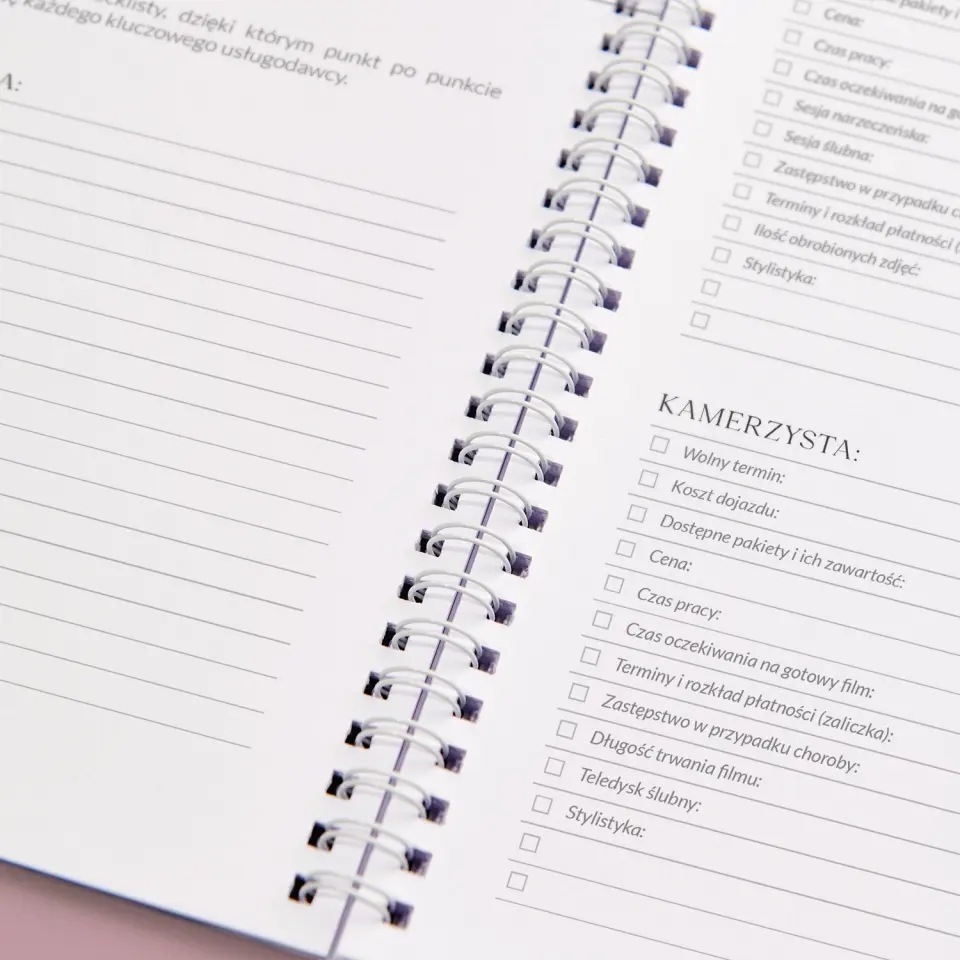 dzięki którym punkt po punkcie
każdego kluczowego usługodawcy.
A:
Cena:
Czas pracy:
Czas oczekiwania na
Sesja narzeczeńska:
Sesja ślubna:
Zastępstwo w przypadku
Terminy i rozkład płatności
Ilość obrobionych zdjęć:
Stylistyka:
KAMERZYSTA:
Wolny termin:
Koszt dojazdu:
Dostępne pakiety i ich zawartość:
Cena:
Czas pracy:
Czas oczekiwania na gotowy film:
Terminy i rozkład płatności (zaliczka):
Zastępstwo w przypadku choroby:
Długość trwania filmu:
Teledysk ślubny:
Stylistyka: